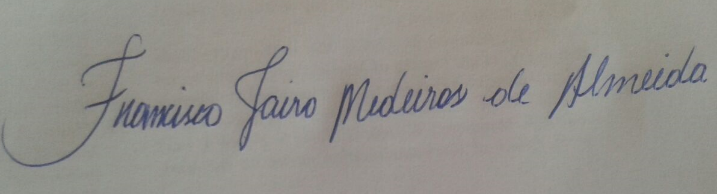 Francisco Jairo Medeiros de Almeida